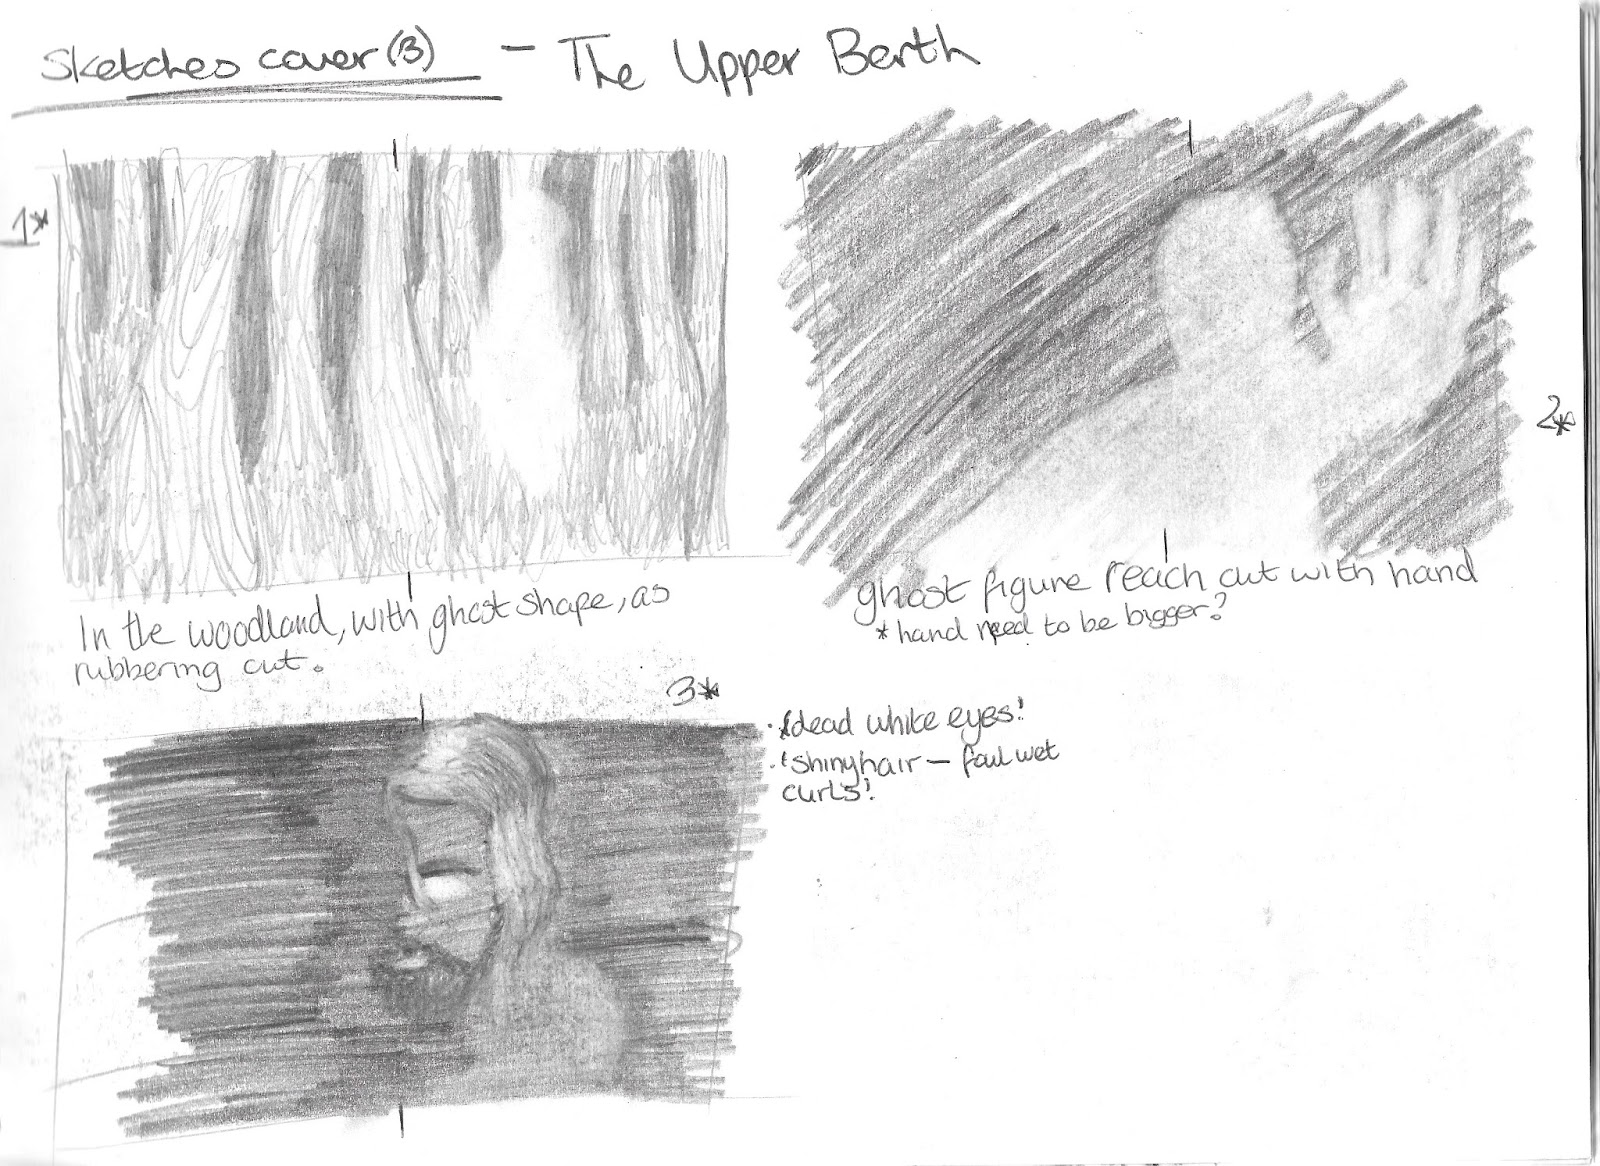 Sketches cover (3) - The Upper Berth
1*
2*
In the woodland, with ghost shape, as
rubbering out.
ghost figure reach out with hand
* hand need to be bigger?
3*
· *dead white eyes!
· *shiny hair — foul wet
curls!